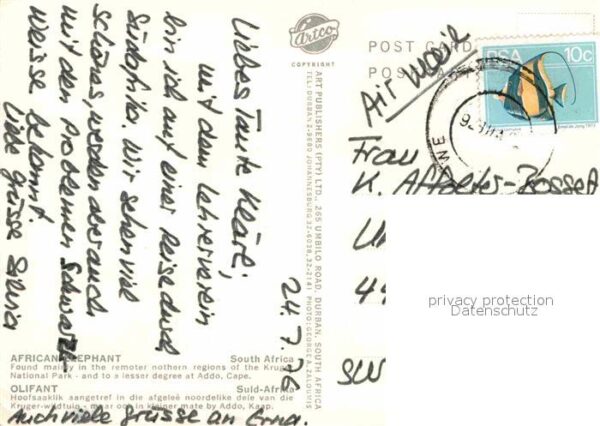 24.7.76
Liebes Tante Kläre,
mit dem Lehrerverein
bin ich auf einer Reise durch
Südafrika. Wir sehen viel
schönes, werden aber auch
mit den Problemen Schwarz-
weisse bekannt.
Liebe Grüsse Silvia
Auch viele Grüsse an Erna.
Artco
COPYRIGHT
ART PUBLISHERS (PTY) LTD., 265 UMBILO ROAD, DURBAN, SOUTH AFRICA
POST CARD
Air Mail
RSA 10c
Frau
K. Affolter-Bosset
privacy protection
Datenschutz
AFRICAN ELEPHANT South Africa
Found mainly in the remoter nothern regions of the Kruger
National Park - and to a lesser degree at Addo, Cape.
OLIFANT Suid-Afrika
Hoofsaaklik aangetref in die afgeleë noordelike dele van die
Kruger-wildtuin - maar ook in kleiner mate by Addo, Kaap.